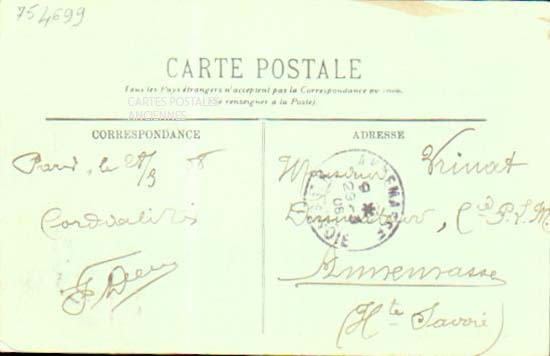 754699
CARTE POSTALE
Tous les Pays étrangers n'acceptent pas la Correspondance au recto.
(Se renseigner à la Poste).
CARTES POSTALES
ANCIENNES
CORRESPONDANCE
ADRESSE
Paris, le
Cordialités
Monsieur Vrinat
Annemasse
(Hte Savoie)
ANNEMASSE